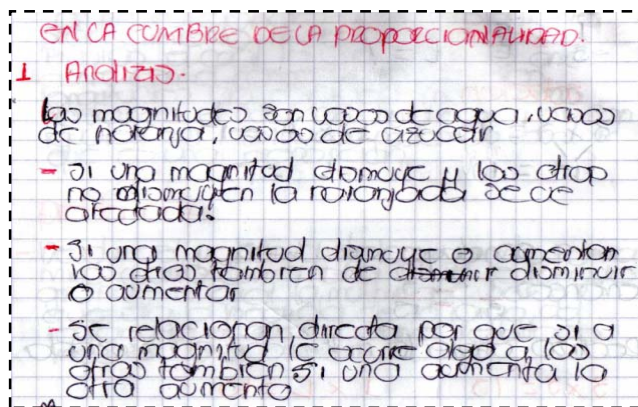 EN LA CUMBRE DE LA PROPORCIONALIDAD.
1 Analizo.
Las magnitudes son vasos de agua, vasos
de naranja, vasos de azucar
- Si una magnitud dismuye y las otras
no dismuyen la naranjada se ve
afectada.
- Si una magnitud dismuye o aumentan
las otras tambien de disminuir
o aumentar
- Se relacionan directa por que si a
una magnitud le ocurre algo a las
otras tambien si una aumenta la
otra aumenta